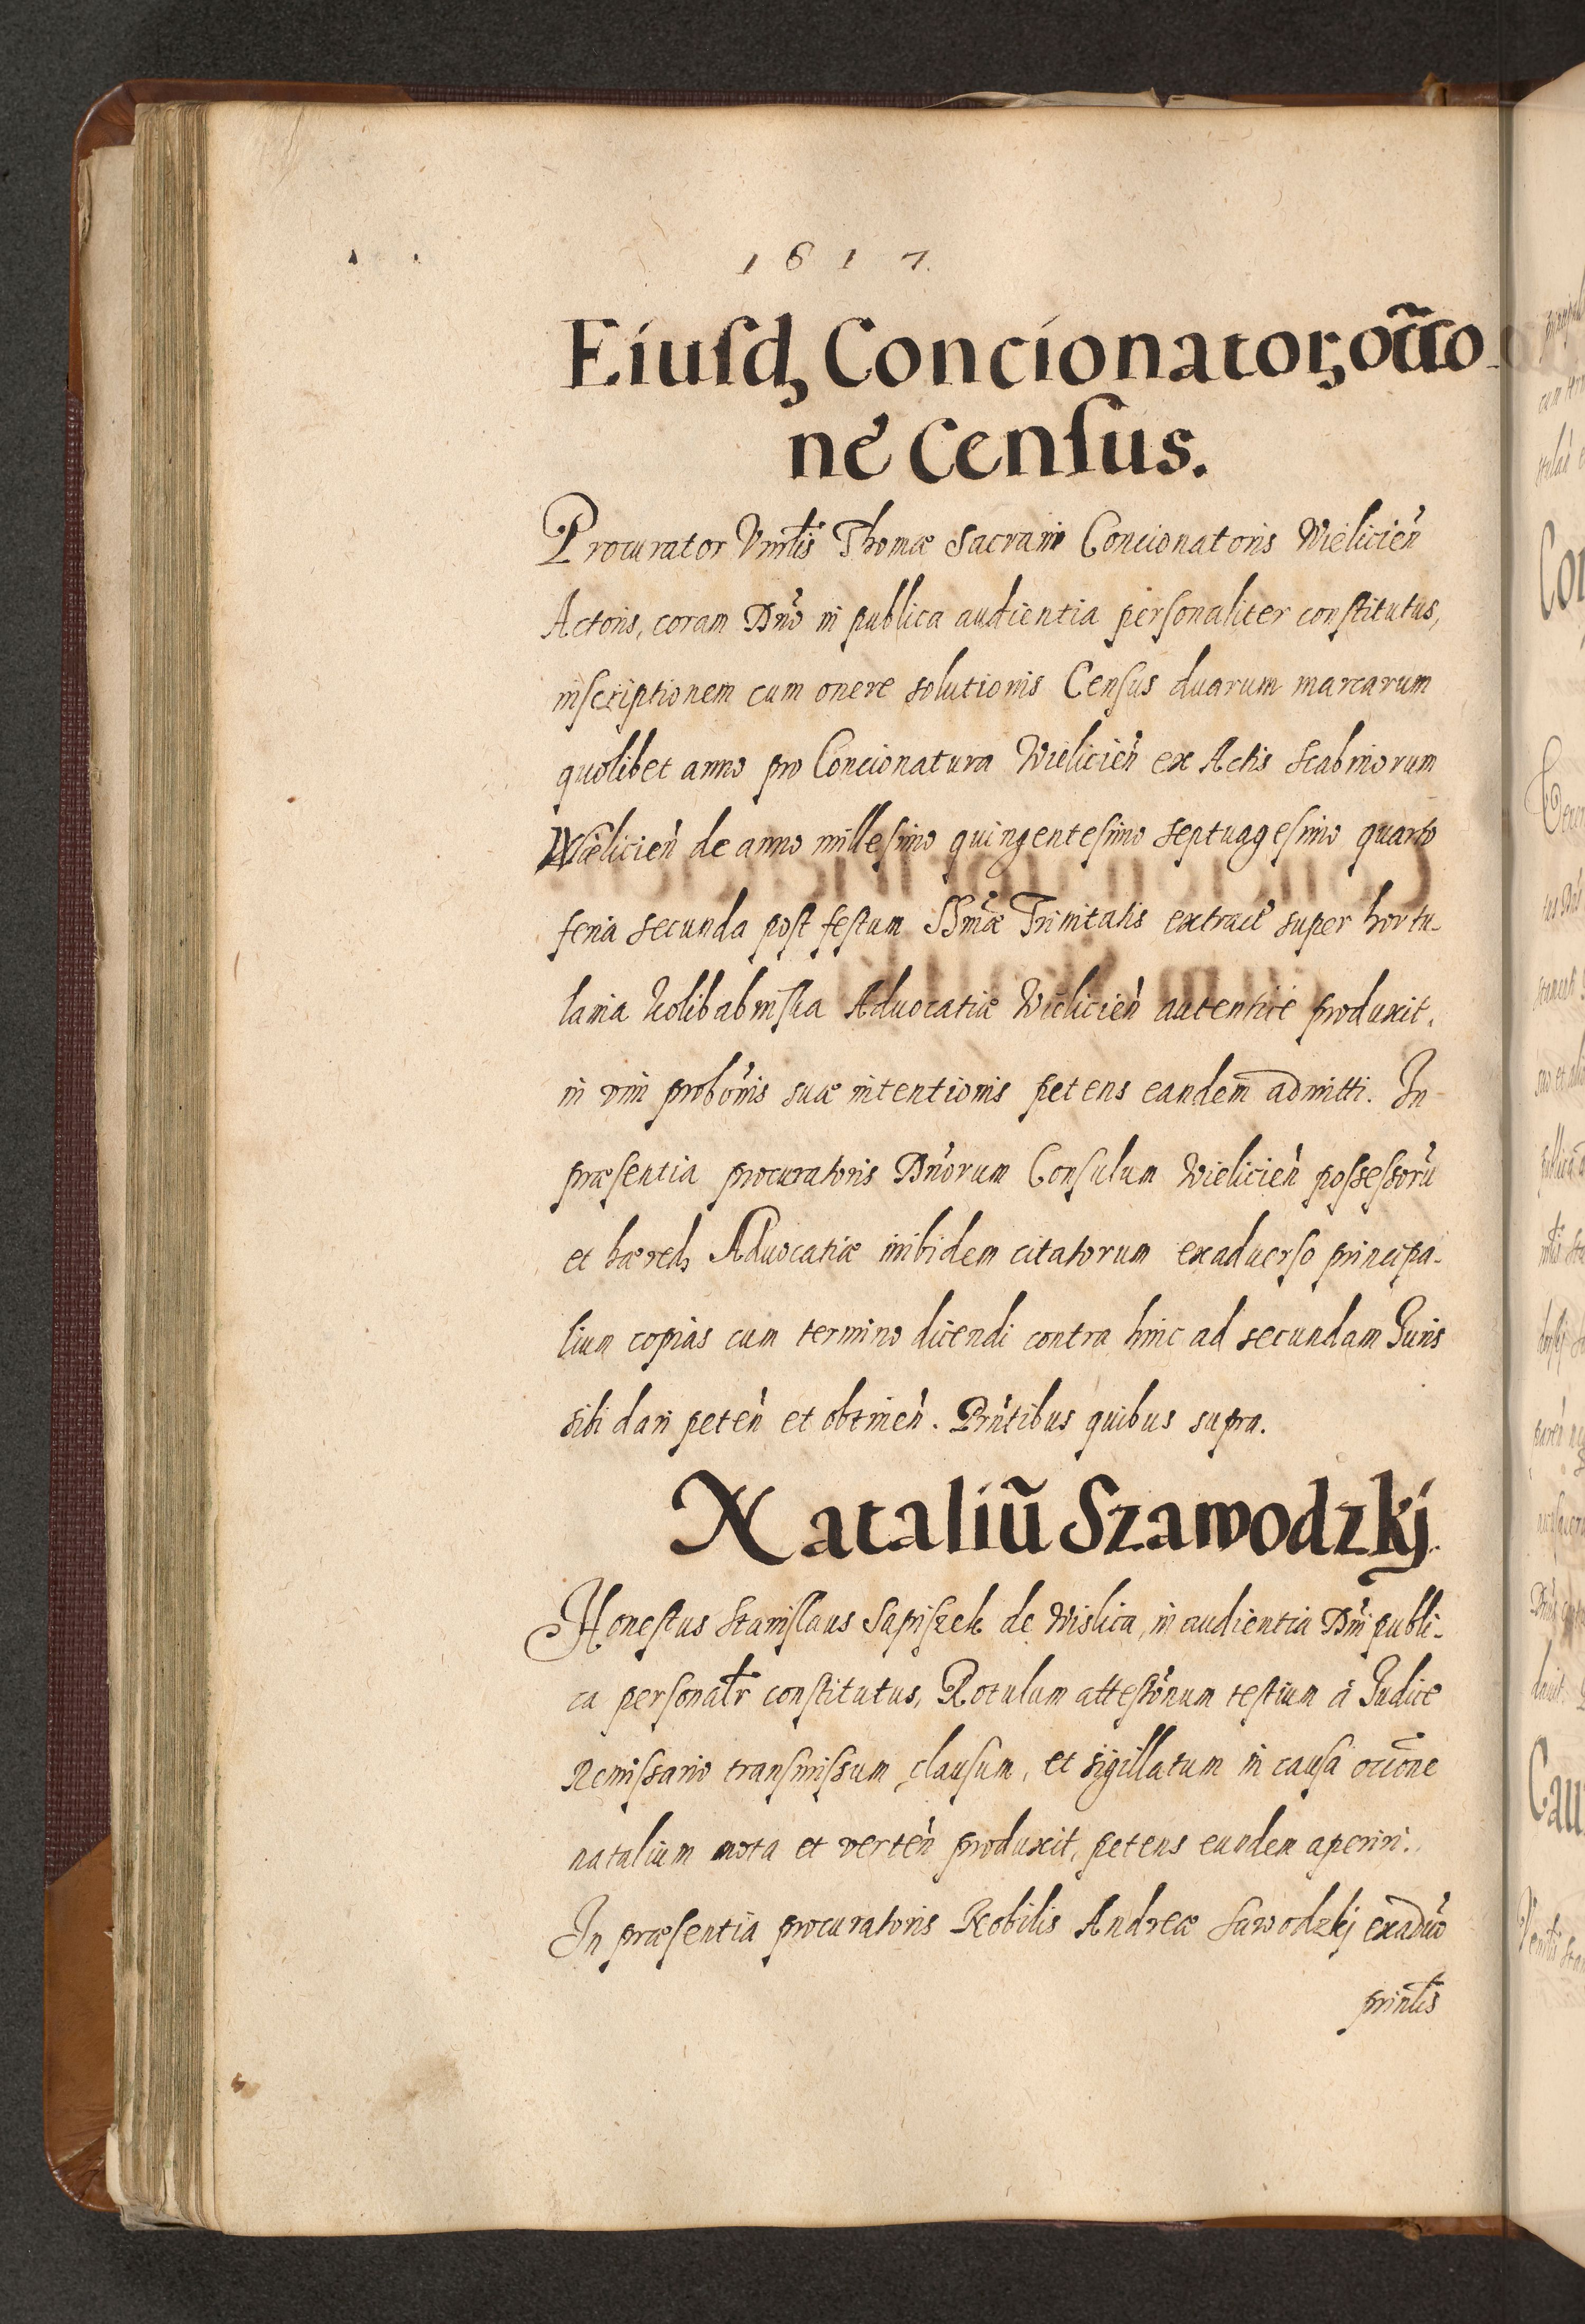 1617.
Eiusdꝫ Concionatorꝫ occ̃o-
nẽ Census.
Procurator Vnrlis Thomæ Sacrani Concionatoris Wielicień
Actoris, coram Dno in publica audientia personaliter constitutus,
inscriptionem cum onere solutionis Census duarum marcarum
quolibet anno pro Concionatura Wielicień ex Actis Scabinorum
Wielicień de anno millesimo quingentesimo septuagesimo quarto
feria secunda post festum SSmæ Trinitatis extracte super hortu-
lania Kolibabinska Aduocatiæ Wielicień autentice produxit,
in vim probonis suæ intentionis petens eandem admitti. In
præsentia procuratoris Dnorum Consulum Wielicień possessorũ
et hæredꝫ Aduocatiæ inibidem citatorum exaduerso principa-
lium copias cum termino dicendi contra hinc ad secundam Juris
sibi dari peteń et obtineń. Pñtibus quibus supra.
Nataliũ Szawodzkj.
Honestus Stanislaus Sapiszek de Wislica, in audientia Dni publi-
ca personalr constitutus, Rotulum attestonum testium à Judice
Remissario transmissum clausum, et sigillatum in causa occõne
natalium mota et verteń produxit, petens eundem aperiri.
In præsentia procuratoris Nobilis Andreæ Sawodzkj exaduo
prinlis